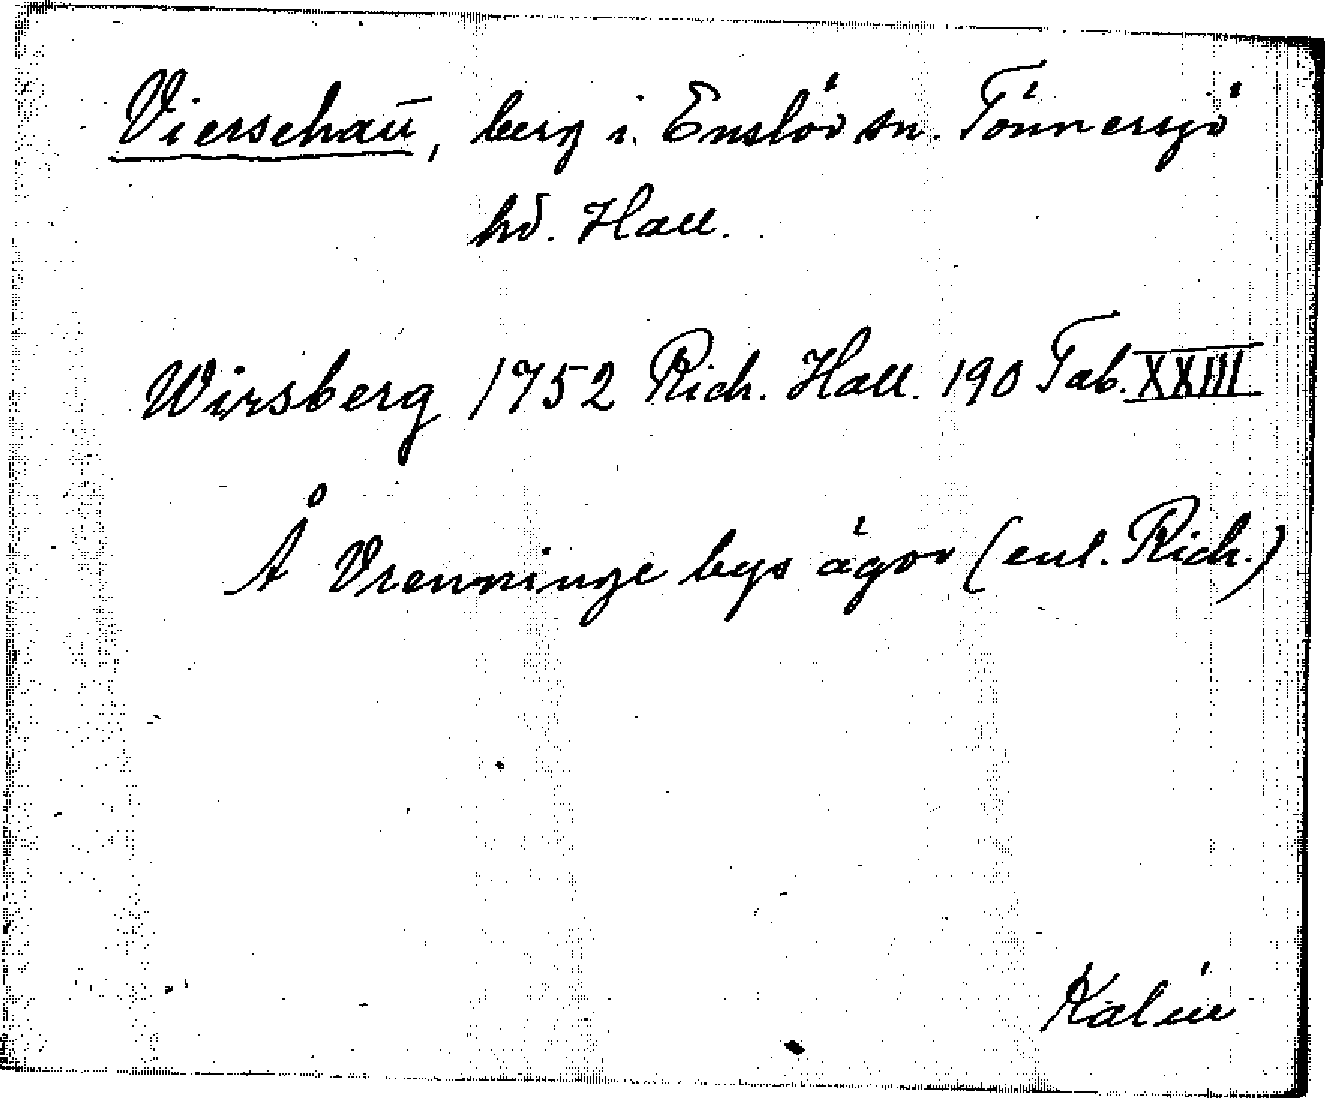 Vierschaū, berg i. Enslöv sn. Tönnersjö
hd. Hall.
Wirsberg 1752 Rich. Hall. 190 Tab. XXIII
Å Vrenninge bys ägor (enl. Rich.)
Kalén